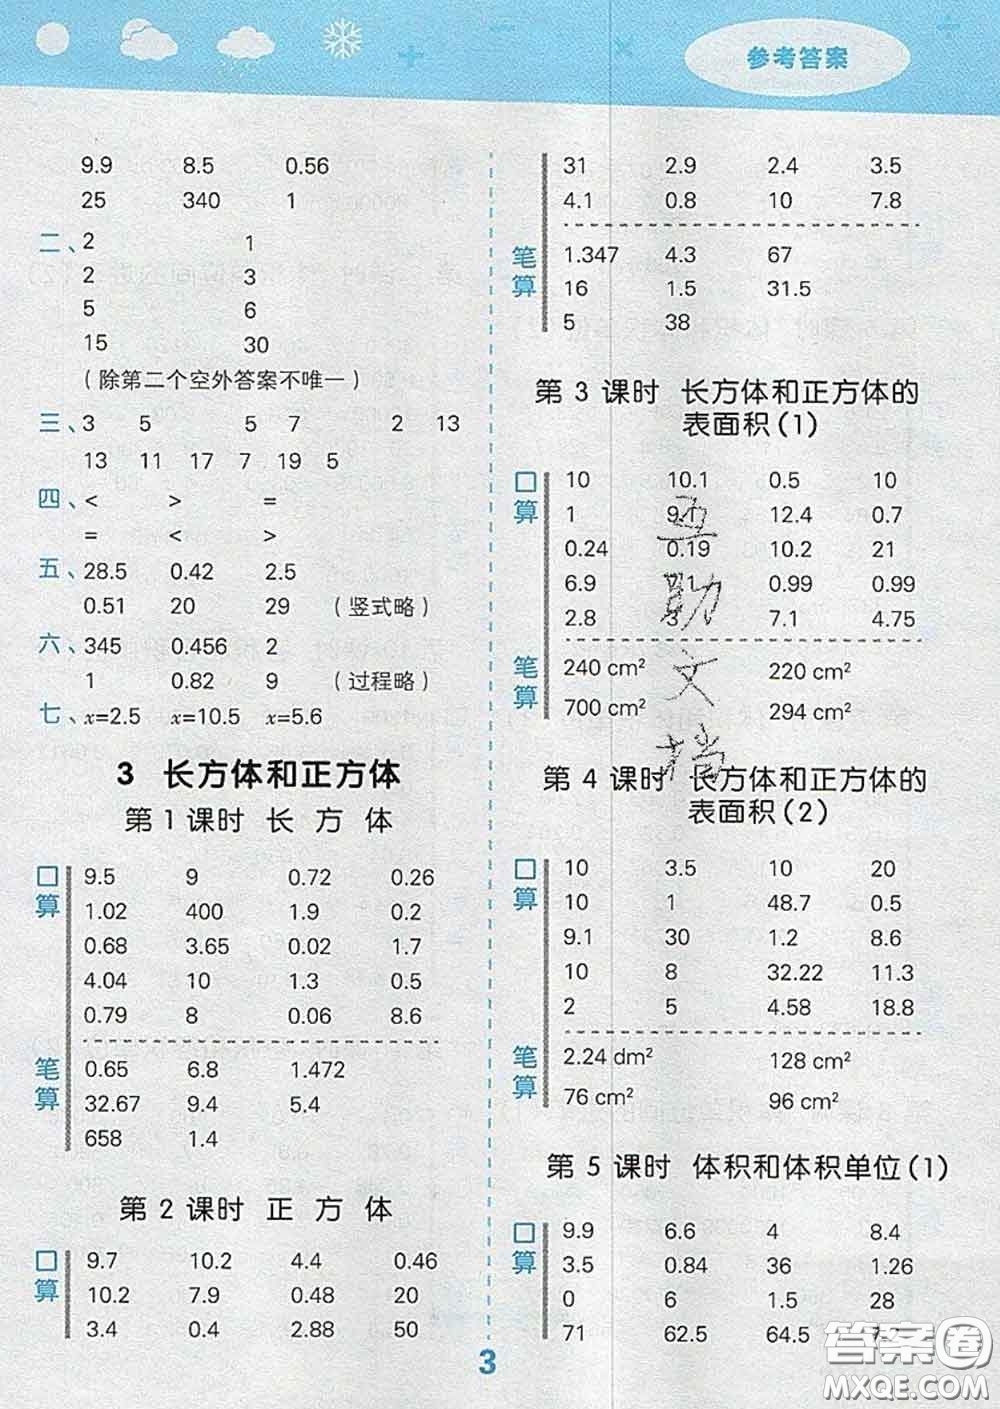 参考答案
9.9 8.5 0.56
25 340 1
二、2 1
2 3
5 6
15 30
（除第二个空外答案不唯一）
三、3 5 5 7 2 13
13 11 17 7 19 5
四、< > =
= < >
五、28.5 0.42 2.5
0.51 20 29 （竖式略）
六、345 0.456 2
1 0.82 9 （过程略）
七、x=2.5 x=10.5 x=5.6
3 长方体和正方体
第1课时 长 方 体
口算
9.5 9 0.72 0.26
1.02 400 1.9 0.2
0.68 3.65 0.02 1.7
4.04 10 1.3 0.5
0.79 8 0.06 8.6
笔算
0.65 6.8 1.472
32.67 9.4 5.4
658 1.4
第2课时 正 方 体
口算
9.7 10.2 4.4 0.46
10.2 7.9 0.48 20
3.4 0.4 2.88 50
31 2.9 2.4 3.5
4.1 0.8 10 7.8
笔算
1.347 4.3 67
16 1.5 31.5
5 38
第3课时 长方体和正方体的
表面积(1)
口算
10 10.1 0.5 10
1 9.1 12.4 0.7
0.24 0.19 10.2 21
6.9 0.99 0.99
2.8 7.1 4.75
笔算
240 cm² 220 cm²
700 cm² 294 cm²
第4课时 长方体和正方体的
表面积(2)
口算
10 3.5 10 20
10 1 48.7 0.5
9.1 30 1.2 8.6
10 8 32.22 11.3
2 5 4.58 18.8
笔算
2.24 dm² 128 cm²
76 cm² 96 cm²
第5课时 体积和体积单位(1)
口算
9.9 6.6 4 8.4
3.5 0.84 36 1.26
0 6 1.5 28
71 62.5 64.5
3
助文档
答案圈
MXQE.COM